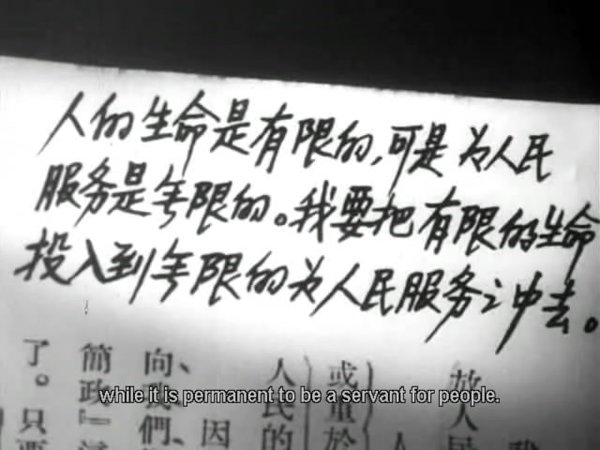 人的生命是有限的,可是为人民
服务是無限的。我要把有限的生命
投入到無限的为人民服务之中去。
或重於
人民的
因
簡政』
了。只要
while it is permanent to be a servant for people.